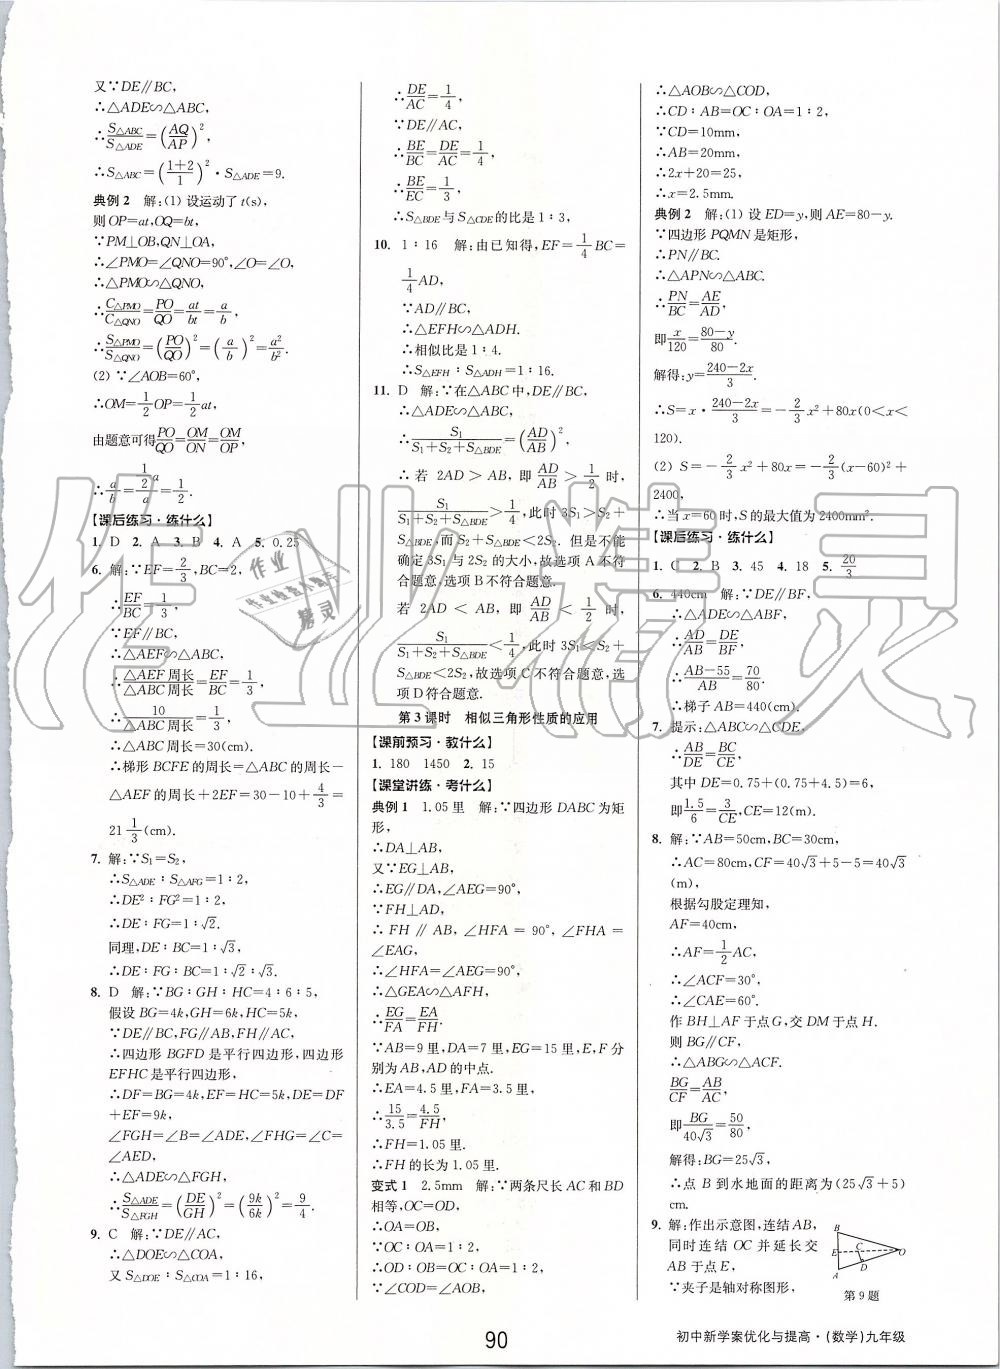 又∵DE∥BC,
∴△ADE∽△ABC,
∴S△ABC/S△ADE=(AQ/AP)²,
∴S△ABC=((1+2)/1)²·S△ADE=9.
典例2 解:(1)设运动了t(s),
则OP=at,OQ=bt,
∵PM⊥OB,QN⊥OA,
∴∠PMO=∠QNO=90°,∠O=∠O,
∴△PMO∽△QNO,
∴C△PMO/C△QNO=PO/QO=at/bt=a/b,
∴S△PMO/S△QNO=(PO/QO)²=(a/b)²=a²/b².
(2)∵∠AOB=60°,
∴OM=1/2OP=1/2at,
由题意可得PO/QO=OM/ON=OM/OP,
∴a/b=(1/2a)/a=1/2.
【课后练习·练什么】
1. D 2. A 3. B 4. A 5. 0.25
6. 解:∵EF=2/3,BC=2,
∴EF/BC=1/3,
∵EF∥BC,
∴△AEF∽△ABC,
∴△AEF周长/△ABC周长=EF/BC=1/3,
∴10/△ABC周长=1/3,
∴△ABC周长=30(cm).
∴梯形BCFE的周长=△ABC的周长−
△AEF的周长+2EF=30−10+4/3=
21 1/3(cm).
7. 解:∵S₁=S₂,
∴S△ADE∶S△AFG=1∶2,
∴DE²∶FG²=1∶2,
∴DE∶FG=1∶√2.
同理,DE∶BC=1∶√3,
∴DE∶FG∶BC=1∶√2∶√3.
8. D 解:∵BG∶GH∶HC=4∶6∶5,
假设BG=4k,GH=6k,HC=5k,
∵DE∥BC,FG∥AB,FH∥AC,
∴四边形BGFD是平行四边形,四边形
EFHC是平行四边形,
∴DF=BG=4k,EF=HC=5k,DE=DF
+EF=9k,
∠FGH=∠B=∠ADE,∠FHG=∠C=
∠AED,
∴△ADE∽△FGH,
∴S△ADE/S△FGH=(DE/GH)²=(9k/6k)²=9/4.
9. C 解:∵DE∥AC,
∴△DOE∽△COA,
又S△DOE∶S△COA=1∶16,
∴DE/AC=1/4,
∵DE∥AC,
∴BE/BC=DE/AC=1/4,
∴BE/EC=1/3,
∴S△BDE与S△CDE的比是1∶3,
10. 1∶16 解:由已知得,EF=1/4BC=
1/4AD,
∵AD∥BC,
∴△EFH∽△ADH.
∴相似比是1∶4.
∴S△EFH∶S△ADH=1∶16.
11. D 解:∵在△ABC中,DE∥BC,
∴△ADE∽△ABC,
∴S₁/(S₁+S₂+S△BDE)=(AD/AB)²,
∴若2AD>AB,即AD/AB>1/2时,
S₁/(S₁+S₂+S△BDE)>1/4,此时3S₁>S₂+
S△BDE,而S₂+S△BDE<2S₂.但是不能
确定3S₁与2S₂的大小,故选项A不符
合题意,选项B不符合题意.
若2AD<AB,即AD/AB<1/2时,
S₁/(S₁+S₂+S△BDE)<1/4,此时3S₁<S₂+
S△BDE<2S₂,故选项C不符合题意,选
项D符合题意.
第3课时 相似三角形性质的应用
【课前预习·教什么】
1. 180 1450 2. 15
【课堂讲练·考什么】
典例1 1.05里 解:∵四边形DABC为矩
形,
∴DA⊥AB,
又∵EG⊥AB,
∴EG∥DA,∠AEG=90°,
∵FH⊥AD,
∴FH∥AB,∠HFA=90°,∠FHA=
∠EAG,
∴∠HFA=∠AEG=90°,
∴△GEA∽△AFH,
∴EG/FA=EA/FH.
∵AB=9里,DA=7里,EG=15里,E,F分
别为AB,AD的中点.
∴EA=4.5里,FA=3.5里,
∴15/3.5=4.5/FH,
∴FH=1.05里.
∴FH的长为1.05里.
变式1 2.5mm 解:∵两条尺长AC和BD
相等,OC=OD,
∴OA=OB,
∵OC∶OA=1∶2,
∴OD∶OB=OC∶OA=1∶2,
∵∠COD=∠AOB,
∴△AOB∽△COD,
∴CD∶AB=OC∶OA=1∶2,
∵CD=10mm,
∴AB=20mm,
∴2x+20=25,
∴x=2.5mm.
典例2 解:(1)设ED=y,则AE=80−y.
∵四边形PQMN是矩形,
∴PN∥BC.
∴△APN∽△ABC.
∴PN/BC=AE/AD,
即x/120=(80−y)/80.
解得:y=(240−2x)/3.
∴S=x·(240−2x)/3=−2/3x²+80x(0<x<
120).
(2)S=−2/3x²+80x=−2/3(x−60)²+
2400,
∴当x=60时,S的最大值为2400mm².
【课后练习·练什么】
1. C 2. B 3. 45 4. 18 5. 20/3
6. 440cm 解:∵DE∥BF,
∴△ADE∽△ABF,
∴AD/AB=DE/BF,
∴(AB−55)/AB=70/80,
∴梯子AB=440(cm).
7. 提示:△ABC∽△CDE,
∴AB/DE=BC/CE,
其中DE=0.75+(0.75+4.5)=6,
即1.5/6=3/CE,CE=12(m).
8. 解:∵AB=50cm,BC=30cm,
∴AC=80cm,CF=40√3+5−5=40√3
(m),
根据勾股定理知,
AF=40cm,
∴AF=1/2AC,
∴∠ACF=30°,
∴∠CAE=60°.
作BH⊥AF于点G,交DM于点H.
则BG∥CF,
∴△ABG∽△ACF.
BG/CF=AB/AC,
即BG/40√3=50/80,
解得:BG=25√3,
∴点B到水地面的距离为(25√3+5)
cm.
9. 解:作出示意图,连结AB,
同时连结OC并延长交
AB于点E,
∵夹子是轴对称图形,
B
E
C
O
D
A
第9题
90
初中新学案优化与提高·(数学)九年级
作业精灵
作业
精灵